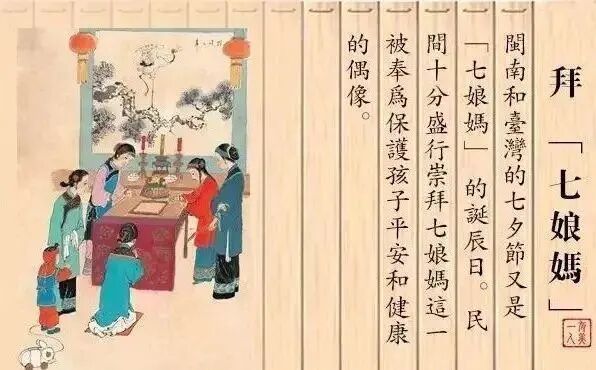 拜「七娘媽」
閩南和臺灣的七夕節又是
「七娘媽」的誕辰日。民
間十分盛行崇拜七娘媽這一
被奉爲保護孩子平安和健康
的偶像。